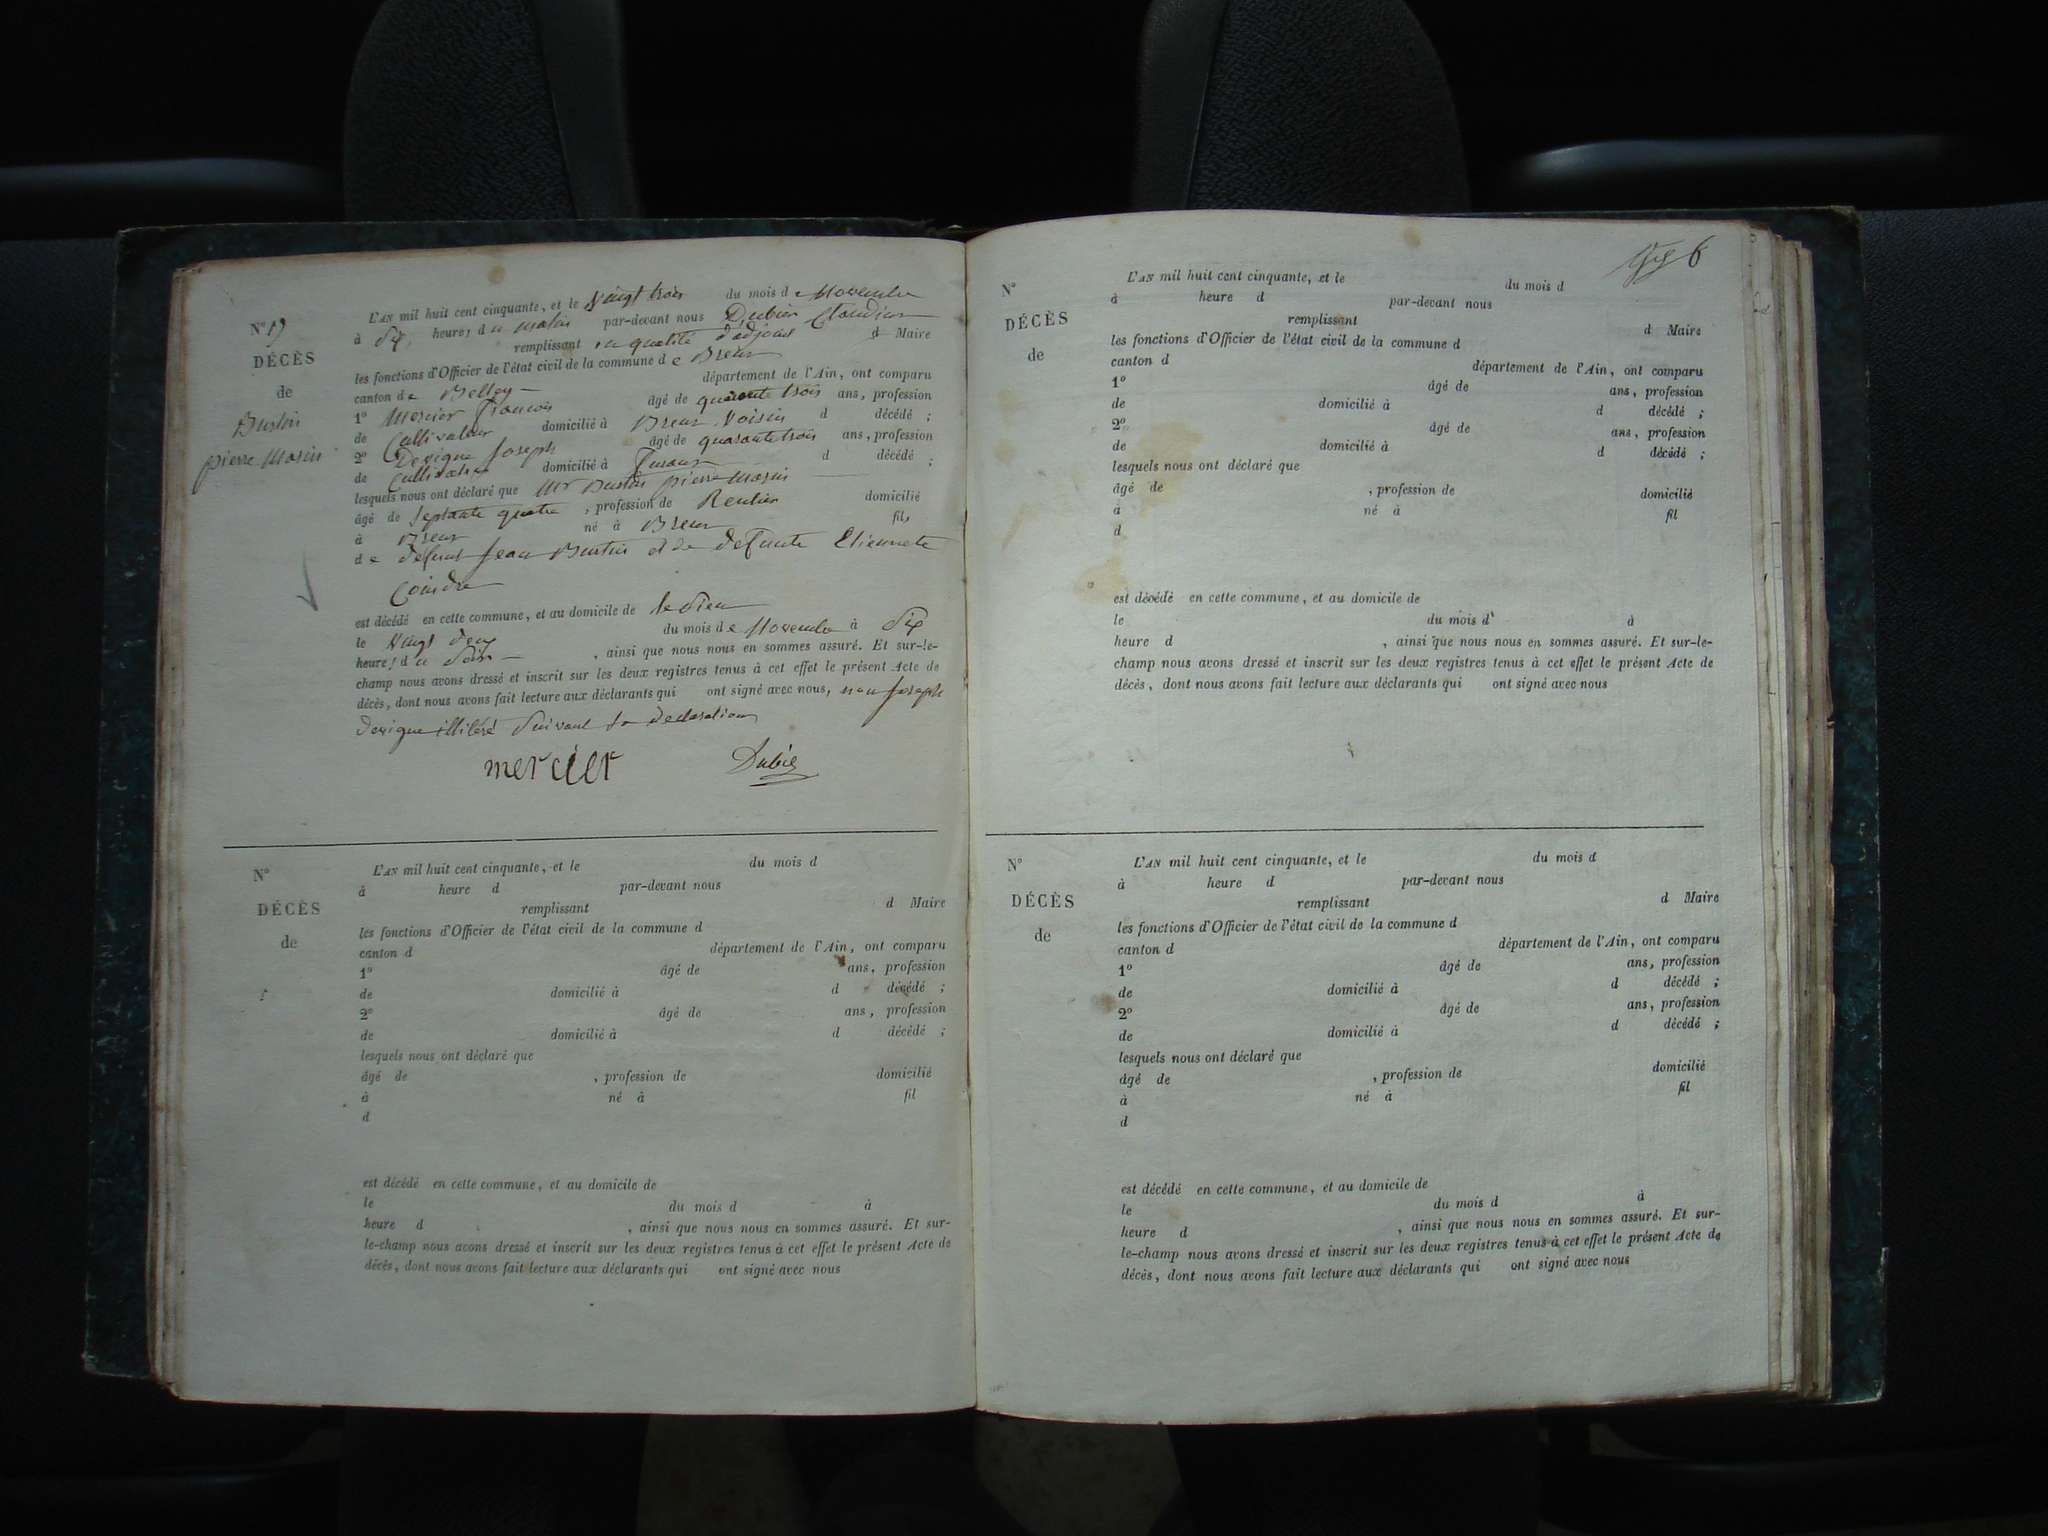 N° 19
DÉCÈS
de
Burtin
pierre Marin
L'AN mil huit cent cinquante, et le vingt trois du mois de Novembre
à dix heures du matin par-devant nous Dubier Claudius
remplissant en qualité d'adjoint d Maire
les fonctions d'Officier de l'état civil de la commune de Brens
canton de Belley département de l'Ain, ont comparu
1° Mercier francois âgé de quarante trois ans, profession
de Cultivateur domicilié à Brens Voisin d décédé ;
2° Derigue Joseph âgé de quarante trois ans, profession
de Cultivateur domicilié à d décédé ;
lesquels nous ont déclaré que Mr Burtin pierre Marin
âgé de septante quatre , profession de Rentier domicilié
à Brens né à Brens fils
de defunt Jean Burtin et de defunte Etiennete
Coindre
est décédé en cette commune, et au domicile de le sien
le vingt deux du mois de Novembre à dix
heures du soir , ainsi que nous nous en sommes assuré. Et sur-le-
champ nous avons dressé et inscrit sur les deux registres tenus à cet effet le présent Acte de
décès, dont nous avons fait lecture aux déclarants qui ont signé avec nous, non Joseph
Derigue illitéré suivant sa declaration
mercier Dubier
N°
DÉCÈS
de
L'AN mil huit cent cinquante, et le du mois d
à heure d par-devant nous
remplissant d Maire
les fonctions d'Officier de l'état civil de la commune d
canton d département de l'Ain, ont comparu
1° âgé de ans, profession
de domicilié à d décédé ;
2° âgé de ans, profession
de domicilié à d décédé ;
lesquels nous ont déclaré que
âgé de , profession de domicilié
à né à fil
d
est décédé en cette commune, et au domicile de
le du mois d à
heure d , ainsi que nous nous en sommes assuré. Et sur-
le-champ nous avons dressé et inscrit sur les deux registres tenus à cet effet le présent Acte de
décès, dont nous avons fait lecture aux déclarants qui ont signé avec nous
6
N°
DÉCÈS
de
L'AN mil huit cent cinquante, et le du mois d
à heure d par-devant nous
remplissant d Maire
les fonctions d'Officier de l'état civil de la commune d
canton d département de l'Ain, ont comparu
1° âgé de ans, profession
de domicilié à d décédé ;
2° âgé de ans, profession
de domicilié à d décédé ;
lesquels nous ont déclaré que
âgé de , profession de domicilié
à né à fil
d
est décédé en cette commune, et au domicile de
le du mois d à
heure d , ainsi que nous nous en sommes assuré. Et sur-le-
champ nous avons dressé et inscrit sur les deux registres tenus à cet effet le présent Acte de
décès, dont nous avons fait lecture aux déclarants qui ont signé avec nous
N°
DÉCÈS
de
L'AN mil huit cent cinquante, et le du mois d
à heure d par-devant nous
remplissant d Maire
les fonctions d'Officier de l'état civil de la commune d
canton d département de l'Ain, ont comparu
1° âgé de ans, profession
de domicilié à d décédé ;
2° âgé de ans, profession
de domicilié à d décédé ;
lesquels nous ont déclaré que
âgé de , profession de domicilié
à né à fil
d
est décédé en cette commune, et au domicile de
le du mois d à
heure d , ainsi que nous nous en sommes assuré. Et sur-
le-champ nous avons dressé et inscrit sur les deux registres tenus à cet effet le présent Acte de
décès, dont nous avons fait lecture aux déclarants qui ont signé avec nous